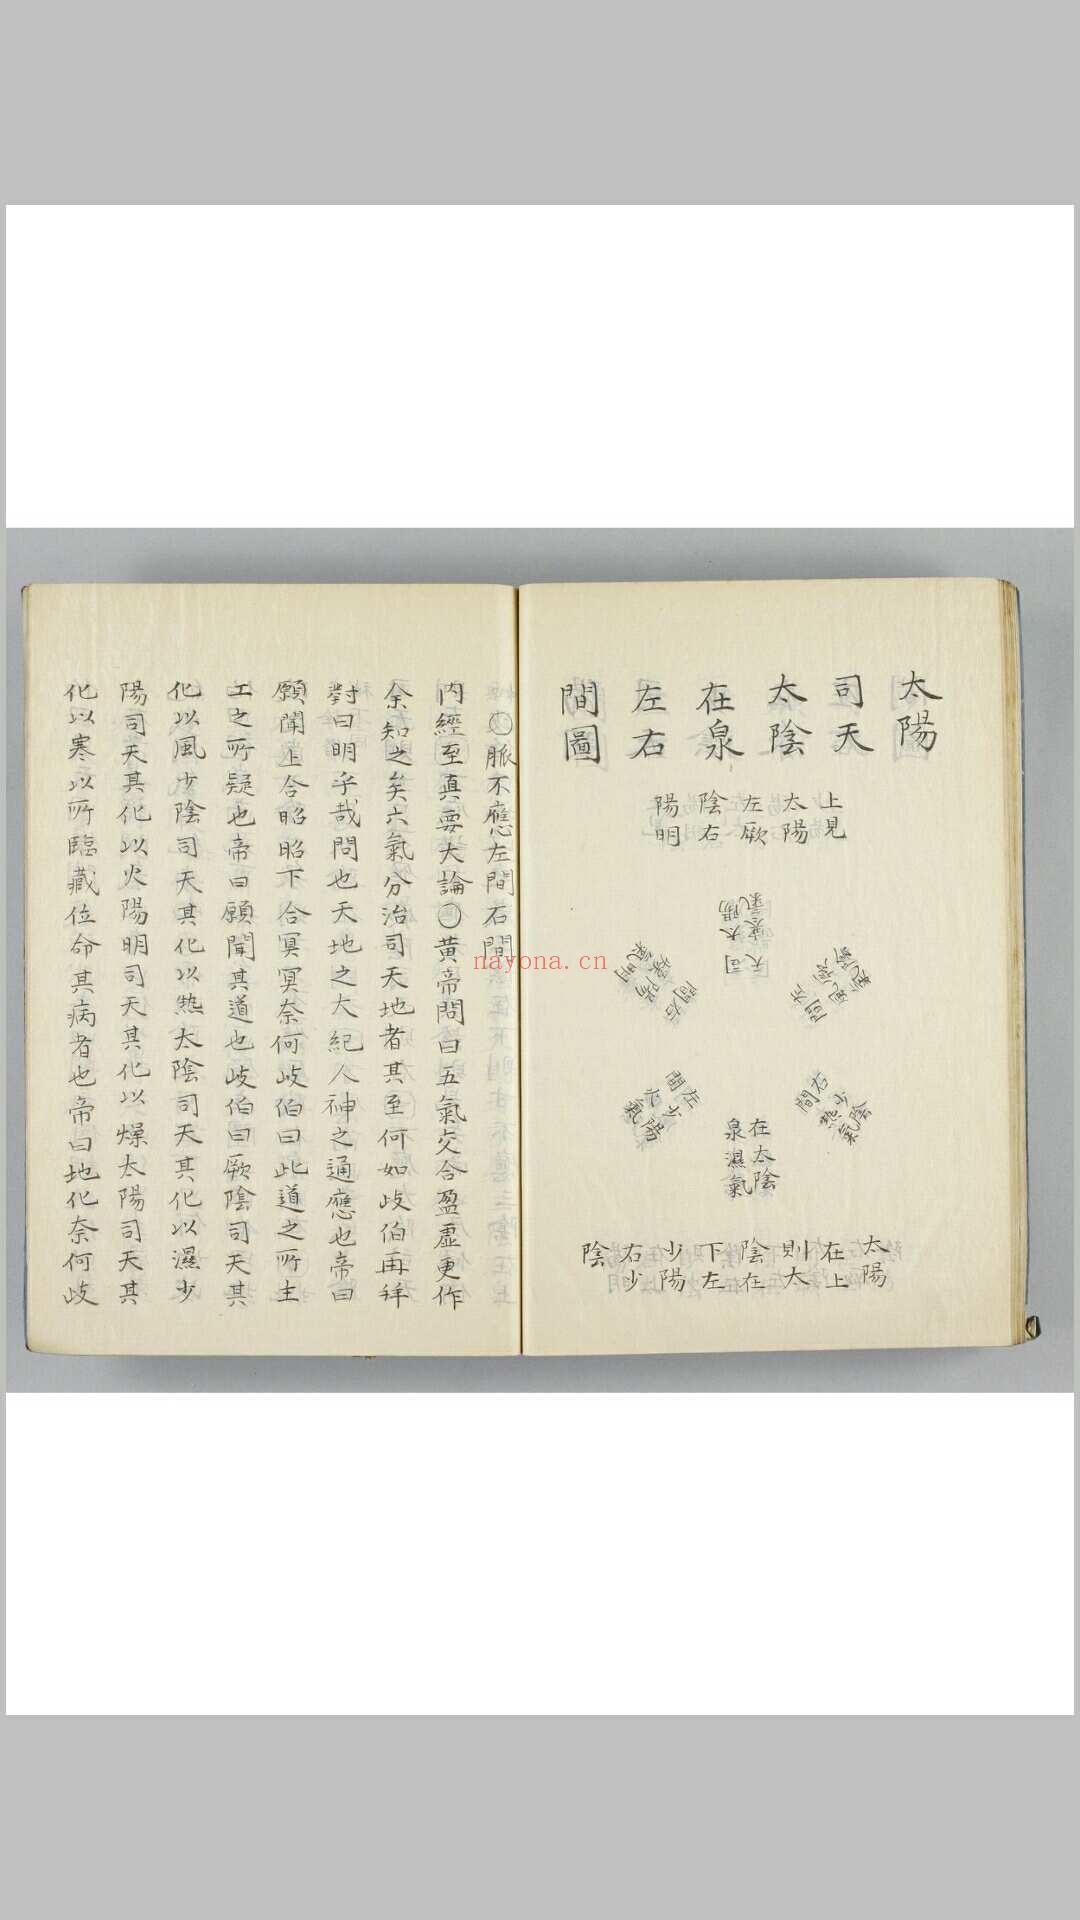 太陽
司天
太陰
在泉
左右
間圖
上見
太陽
左厥
陰右
陽明
司天
太陽
寒氣
左間
厥陰
風氣
右間
陽明
燥氣
右間
少陰
熱氣
在泉
太陰
濕氣
左間
少陽
火氣
太陽
在上
則太
陰在
下左
少陽
右少
陰
〇脈不應左間右間
內經至真要大論〇黃帝問曰五氣交合盈虛更作
余知之矣六氣分治司天地者其至何如歧伯再拜
對曰明乎哉問也天地之大紀人神之通應也帝曰
願聞上合昭昭下合冥冥奈何歧伯曰此道之所主
工之所疑也帝曰願聞其道也歧伯曰厥陰司天其
化以風少陰司天其化以熱太陰司天其化以濕少
陽司天其化以火陽明司天其化以燥太陽司天其
化以寒以所臨藏位命其病者也帝曰地化奈何歧
nayona.cn